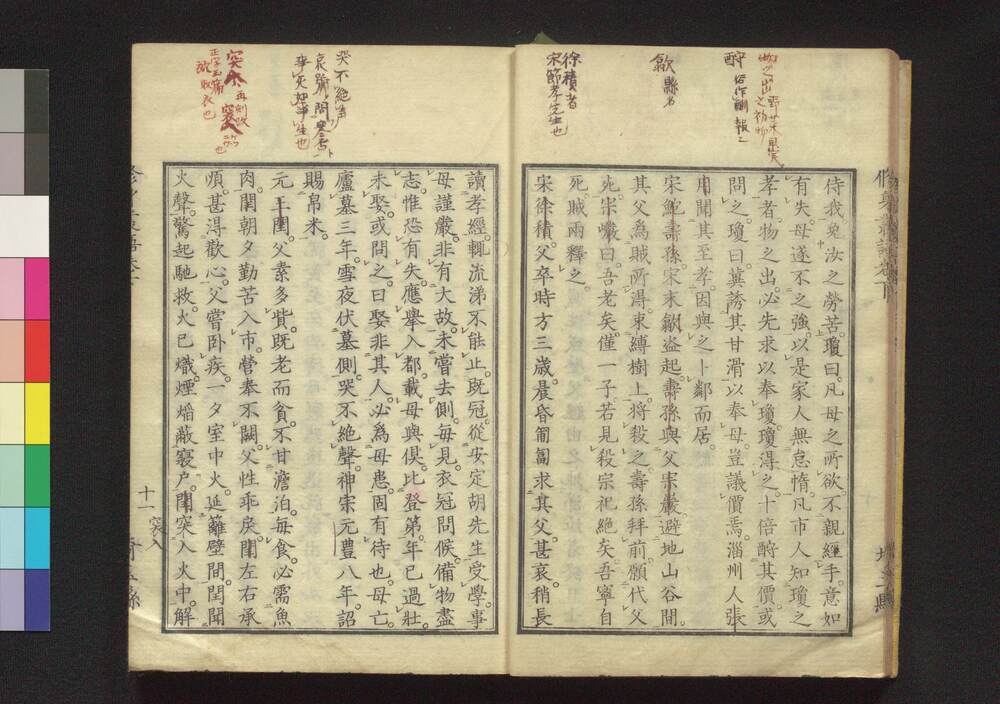 侍我兔汝之勞苦瓊曰凡母之所欲不親經手意如
有失母遂不之強以是家人無怠惰凡市人知瓊之
孝者物之出必先求以奉瓊瓊得之十倍酧其價或
問之瓊曰冀誇其甘滑以奉母豈議價焉淄州人張
用聞其至孝因與之卜鄰而居
宋鮑壽孫宋末歙盜起壽孫與父宗巖避地山谷間
其父為賊所得束縛樹上將殺之壽孫拜前願代父
死宗巖曰吾老矣僅一子若見殺宗祀絶矣吾寧自
死賊兩釋之
宋徐積父卒時方三歲晨昏匍匐求其父甚哀稍長
讀孝經輒流涕不能止既冠從安定胡先生受學事
母謹嚴非有大故未嘗去側每見衣冠問候備物盡
志惟恐有失應舉入都載母與俱比登第年已過壯
未娶或問之曰娶非其人必為母患固有待也母亡
廬墓三年雪夜伏墓側哭不絶聲神宗元豊八年詔
賜帛米
元王閏父素多貲既老而貧不甘澹泊毎食必需魚
肉閏朝夕勤苦入市營奉不闕父性乖戾閏左右承
順甚得歡心父嘗卧疾一夕室中火延籬壁間閏聞
火聲驚起馳救火已熾煙燄蔽寝戶閏突入火中解
十一
酧 俗作酬報之
歙縣名
徐積者
宋節孝先生也
哭不絶聲
突入